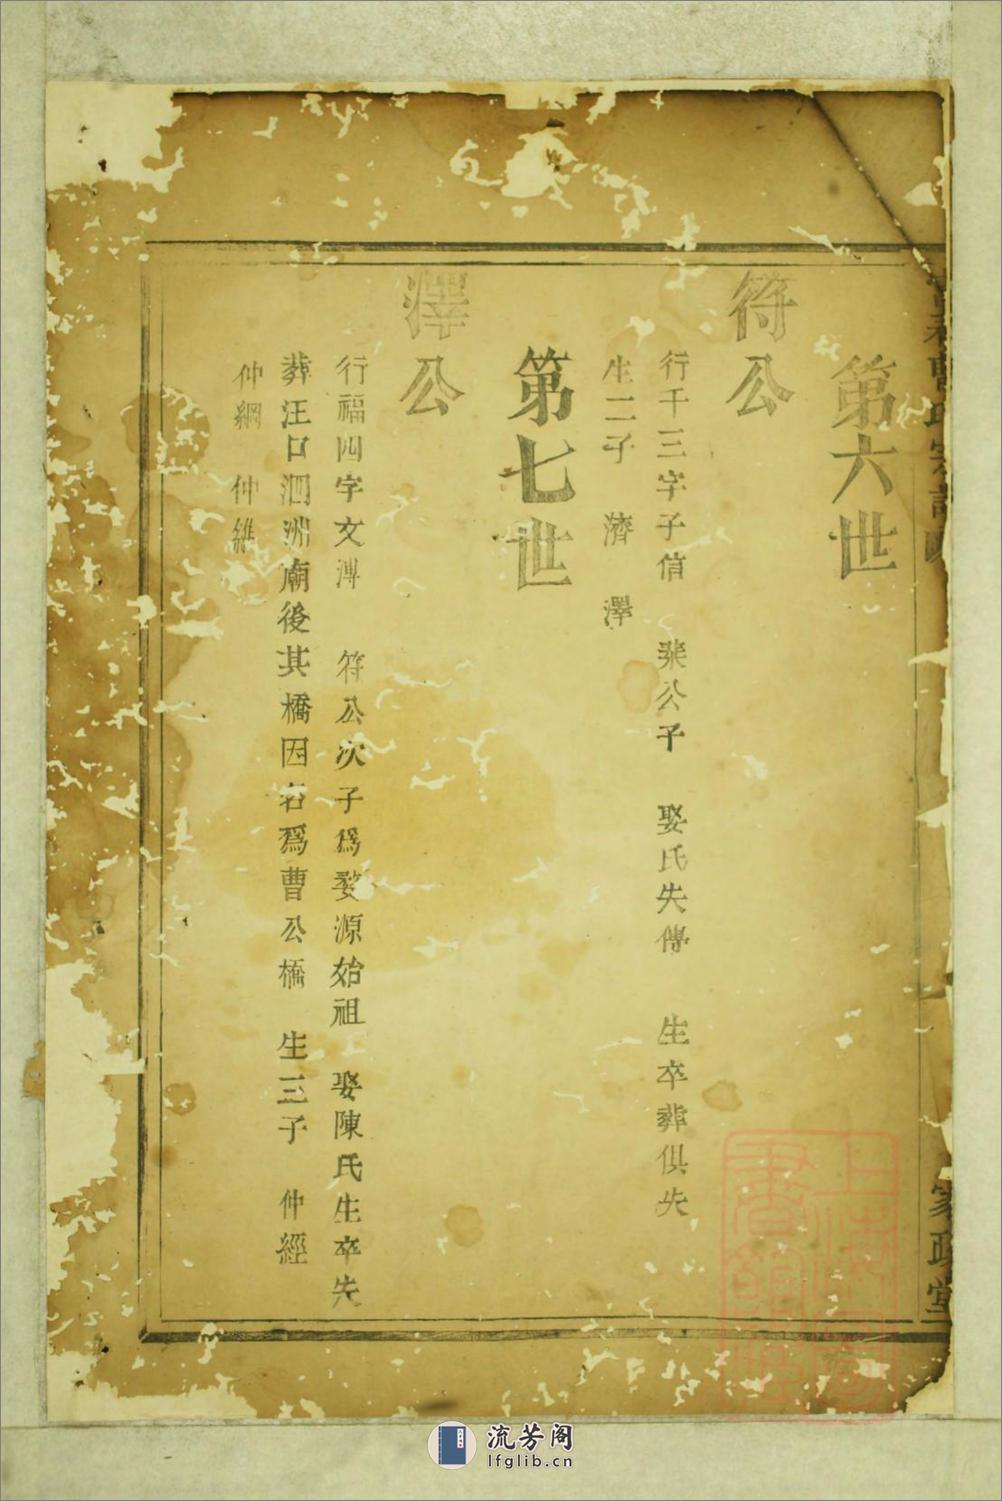 曹氏宗譜
家政堂
第六世
符公
行千三字子俏 棐公子 娶氏失傳 生卒葬俱失
生二子 濟 澤
第七世
澤公
行福四字文溥 符公次子爲婺源始祖 娶陳氏生卒失
葬汪口泗洲廟後其橋因名爲曹公橋 生三子 仲經
仲綱 仲維
上海圖書館藏
流芳阁
lfglib.cn